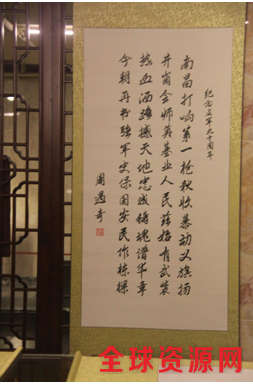 纪念建军九十周年
南昌打响第一枪秋收暴动义旗扬
井冈会师奠基业人民兹始有武装
热血洒疆撼天地忠诚铸魂谱华章
今朝再书强军史保国安民作栋梁
周遇奇
全球资源网